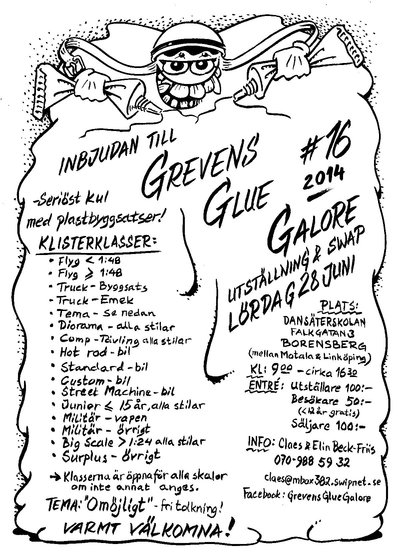 INBJUDAN TILL
GREVENS
GLUE
GALORE
#16
2014
UTSTÄLLNING & SWAP
LÖRDAG 28 JUNI
-Seriöst kul
med plastbyggsatser!
KLISTERKLASSER:
• Flyg < 1:48
• Flyg ≥ 1:48
• Truck - Byggsats
- Truck - Emek
• Tema - se nedan
• Diorama - alla stilar
• Comp - Tävling alla stilar
• Hot rod - bil
• Standard - bil
• Custom - bil
• Street Machine - bil
• Junior ≤ 15 år, alla stilar
• Militär - vapen
• Militär - övrigt
• Big Scale > 1:24 alla stilar
• Surplus - övrigt
→ Klasserna är öppna för alla skalor
om inte annat anges.
TEMA: "Omöjligt" - fri tolkning!
VARMT VÄLKOMNA!
PLATS:
DANSÄTERSKOLAN
FALKGATAN 3
BORENSBERG
(mellan Motala & Linköping)
KL: 9⁰⁰ - cirka 16³⁰
ENTRÉ: Utställare 100:-
Besökare 50:-
(<12 år gratis)
Säljare 100:-
INFO: Claes & Elin Beck-Friis
070-988 59 32
claes@mbox302.swipnet.se
Facebook: Grevens Glue Galore